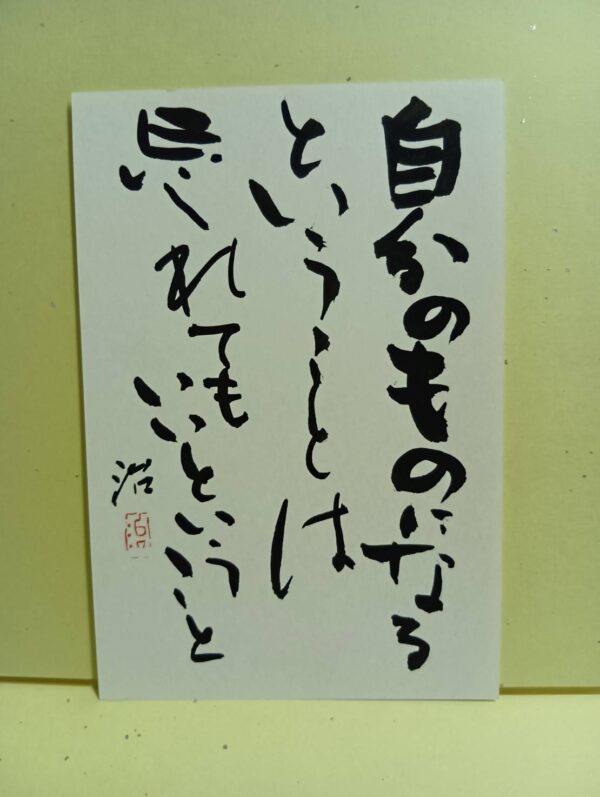 自分のものになる
ということは
忘れても
いいということ
治